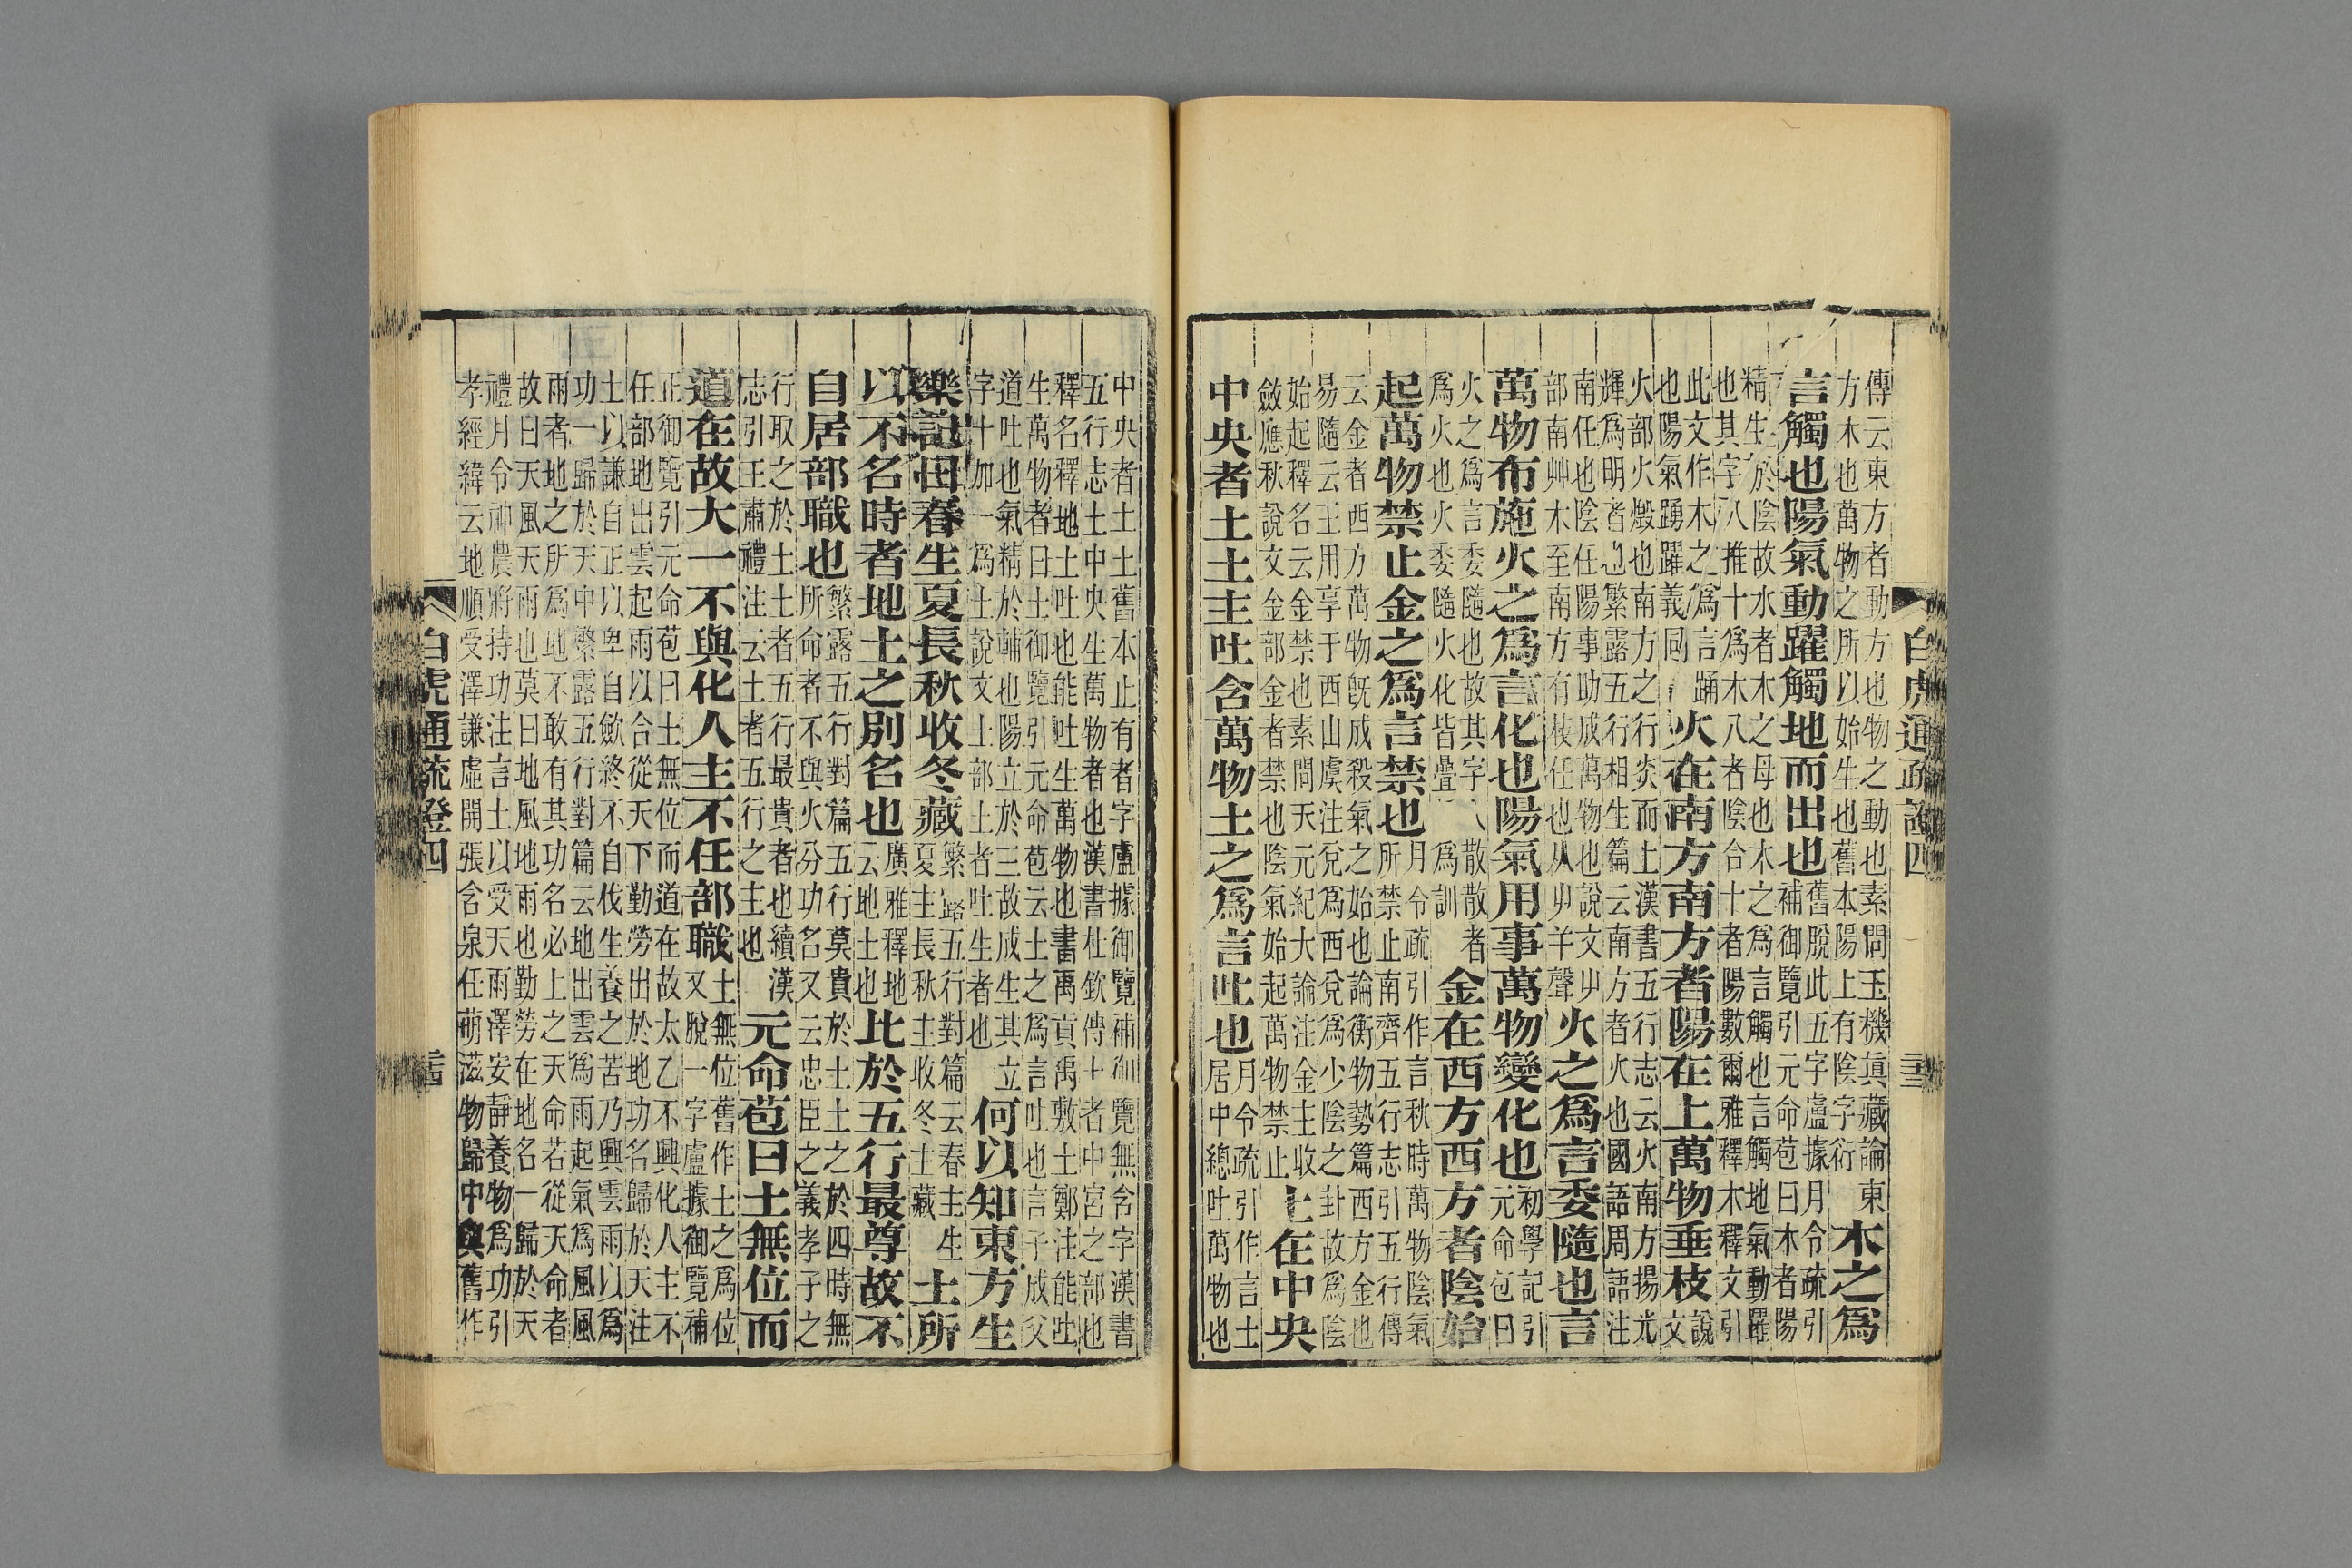 白虎通疏證四
傳云東方者動方也物之動也素問玉機真藏論東
方木也萬物之所以始生也舊本陽上有陰字衍
木之爲
言觸也陽氣動躍觸地而出也
舊脫此五字盧據月令疏引
補御覽引元命苞曰木者陽
精生於陰故水者木之母也木之爲言觸也言觸地氣動躍
也其字八推十爲木八者陰合十者陽數爾雅釋木釋文引
此文作木之爲言踊
也陽氣踴躍義同
火在南方南方者陽在上萬物垂枝
說
文
火部火燬也南方之行炎而土漢書五行志云火南方揚光
輝爲明者也繁露五行相生篇云南方者火也國語周語注
南任也陰任陽事助成萬物也說文
部南艸木至南方有枝任也从羊聲
火之爲言委隨也言
萬物布施火之爲言化也陽氣用事萬物變化也
初學記引
元命包曰
火之爲言委隨也故其字散散者
爲火也火委隨火化皆疊爲訓
金在西方西方者陰始
起萬物禁止金之爲言禁也
月令疏引作言秋時萬物陰氣
所禁止南齊五行志引五行傳
云金者西方萬物旣成殺氣之始也論衡物勢篇西方金也
易隨云王用享于西山虞注兌爲西兌爲少陰之卦故爲陰
始起釋名云金禁也素問天元紀大論注金主收
斂應秋說文金部金者禁也陰氣始起萬物禁止
土在中央
中央者土土主吐含萬物土之爲言吐也
月令疏引作言土
居中總吐萬物也
中央者土土舊本止有者字盧據御覽補御覽無含字漢書
五行志土中央生萬物者也漢書杜欽傳土者中宮之部也
釋名釋地土吐也能吐生萬物也書禹貢禹敷土鄭注能吐
生萬物者曰土御覽引元命苞云土之爲言吐也言子成父
道吐也氣精於輔也陽立於三故成生其立
字十加一爲土說文土部土者吐生者也
何以知東方生
樂記曰春生夏長秋收冬藏
繁露五行對篇云春主生
夏主長秋主收冬主藏
土所
以不名時者地土之別名也
廣雅釋地
云地土也
比於五行最尊故不
自居部職也
繁露五行對篇五行莫貴於土土之於四時無
所命者不與火分功名又云忠臣之義孝子之
行取之於土土者五行最貴者也續漢
志引王肅禮注云土者五行之主也
元命苞曰土無位而
道在故大一不與化人主不任部職
土無位舊作土之爲位
又脫一字盧據御覽補
正御覽引元命苞曰土無位而道在故太乙不興化人主不
任部地出雲起雨以合從天下勤勞出於地功名歸於天注
土以謙自正以卑自歛終不自伐生養之苦乃興雲雨以爲
功一歸於天中繁露五行對篇云地出雲爲雨起氣爲風風
雨者地之所爲地不敢有其功名必上之天命若從天命者
故曰天風天雨也莫曰地風地雨也勤勞在地名一歸於天
禮月令神農將持功注言土以受天雨澤安靜養物爲功引
孝經緯云地順受澤謙虛開張含泉任萌滋物歸中與舊作
白虎通疏證四